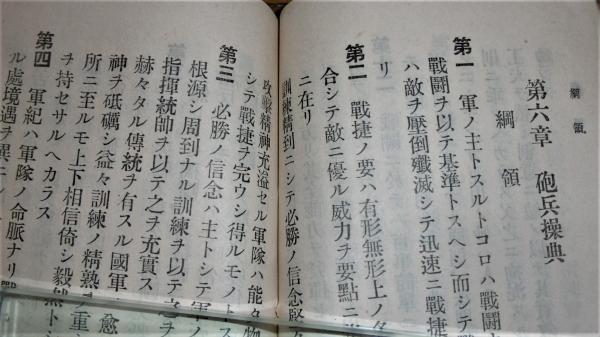 綱領
第六章 砲兵操典
綱領
第一 軍ノ主トスルトコロハ戰鬪
戰鬪ヲ以テ基準トスヘシ而シテ戰
ハ敵ヲ壓倒殲滅シテ迅速ニ戰捷
リ
第二 戰捷ノ要ハ有形無形上ノ
合シテ敵ニ優ル威力ヲ要點ニ
ニ在リ
訓練精到ニシテ必勝ノ信念堅ク
攻擊精神充溢セル軍隊ハ能ク物
シテ戰捷ヲ完ウシ得ルモノトス
第三 必勝ノ信念ハ主トシテ軍ノ
根源シ周到ナル訓練ヲ以テ之ヲ
指揮統帥ヲ以テ之ヲ充實ス
赫々タル傳統ヲ有スル國軍 愈
神ヲ砥礪シ益々訓練ノ精熟 重
所ニ至ルモ上下相信倚シ毅然ト
ヲ持セサルヘカラス
第四 軍紀ハ軍隊ノ命脈ナリ戰
ル處境遇ヲ異ニシ